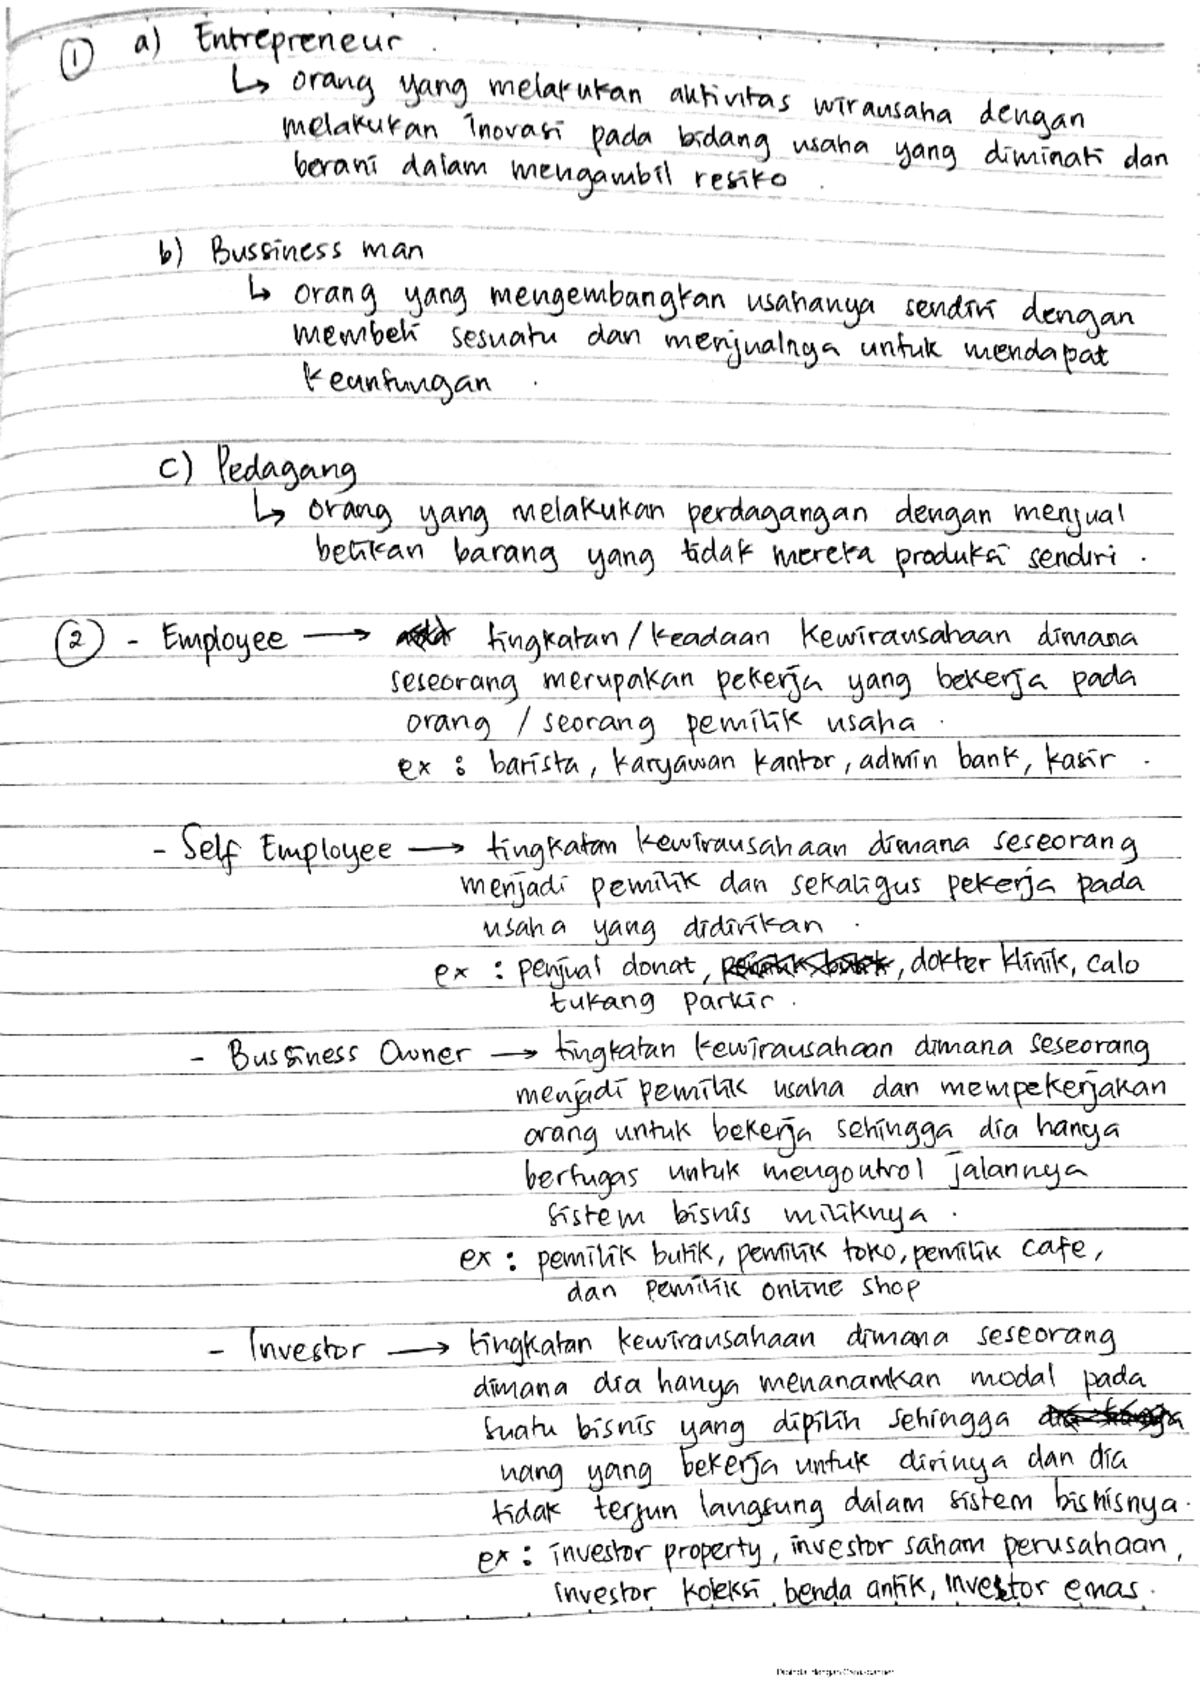 ① a) Entrepreneur .
↳ orang yang melakukan aktivitas wirausaha dengan
melakukan inovasi pada bidang usaha yang diminati dan
berani dalam mengambil resiko .
b) Bussiness man
↳ orang yang mengembangkan usahanya sendiri dengan
membeli sesuatu dan menjualnya untuk mendapat
keuntungan .
c) Pedagang
↳ orang yang melakukan perdagangan dengan menjual
belikan barang yang tidak mereka produksi sendiri .
② - Employee → tingkatan / keadaan kewirausahaan dimana
seseorang merupakan pekerja yang bekerja pada
orang / seorang pemilik usaha .
ex : barista, karyawan kantor, admin bank, kasir .
- Self Employee → tingkatan kewirausahaan dimana seseorang
menjadi pemilik dan sekaligus pekerja pada
usaha yang didirikan .
ex : penjual donat, , dokter klinik, calo
tukang parkir .
- Bussiness Owner → tingkatan kewirausahaan dimana seseorang
menjadi pemilik usaha dan mempekerjakan
orang untuk bekerja sehingga dia hanya
bertugas untuk mengoutrol jalannya
sistem bisnis miliknya .
ex : pemilik butik, pemilik toko, pemilik cafe,
dan pemilik online shop
- Investor → tingkatan kewirausahaan dimana seseorang
dimana dia hanya menanamkan modal pada
suatu bisnis yang dipilih sehingga
uang yang bekerja untuk dirinya dan dia
tidak terjun langsung dalam sistem bisnisnya.
ex : investor property, investor saham perusahaan,
investor koleksi benda antik, investor emas.